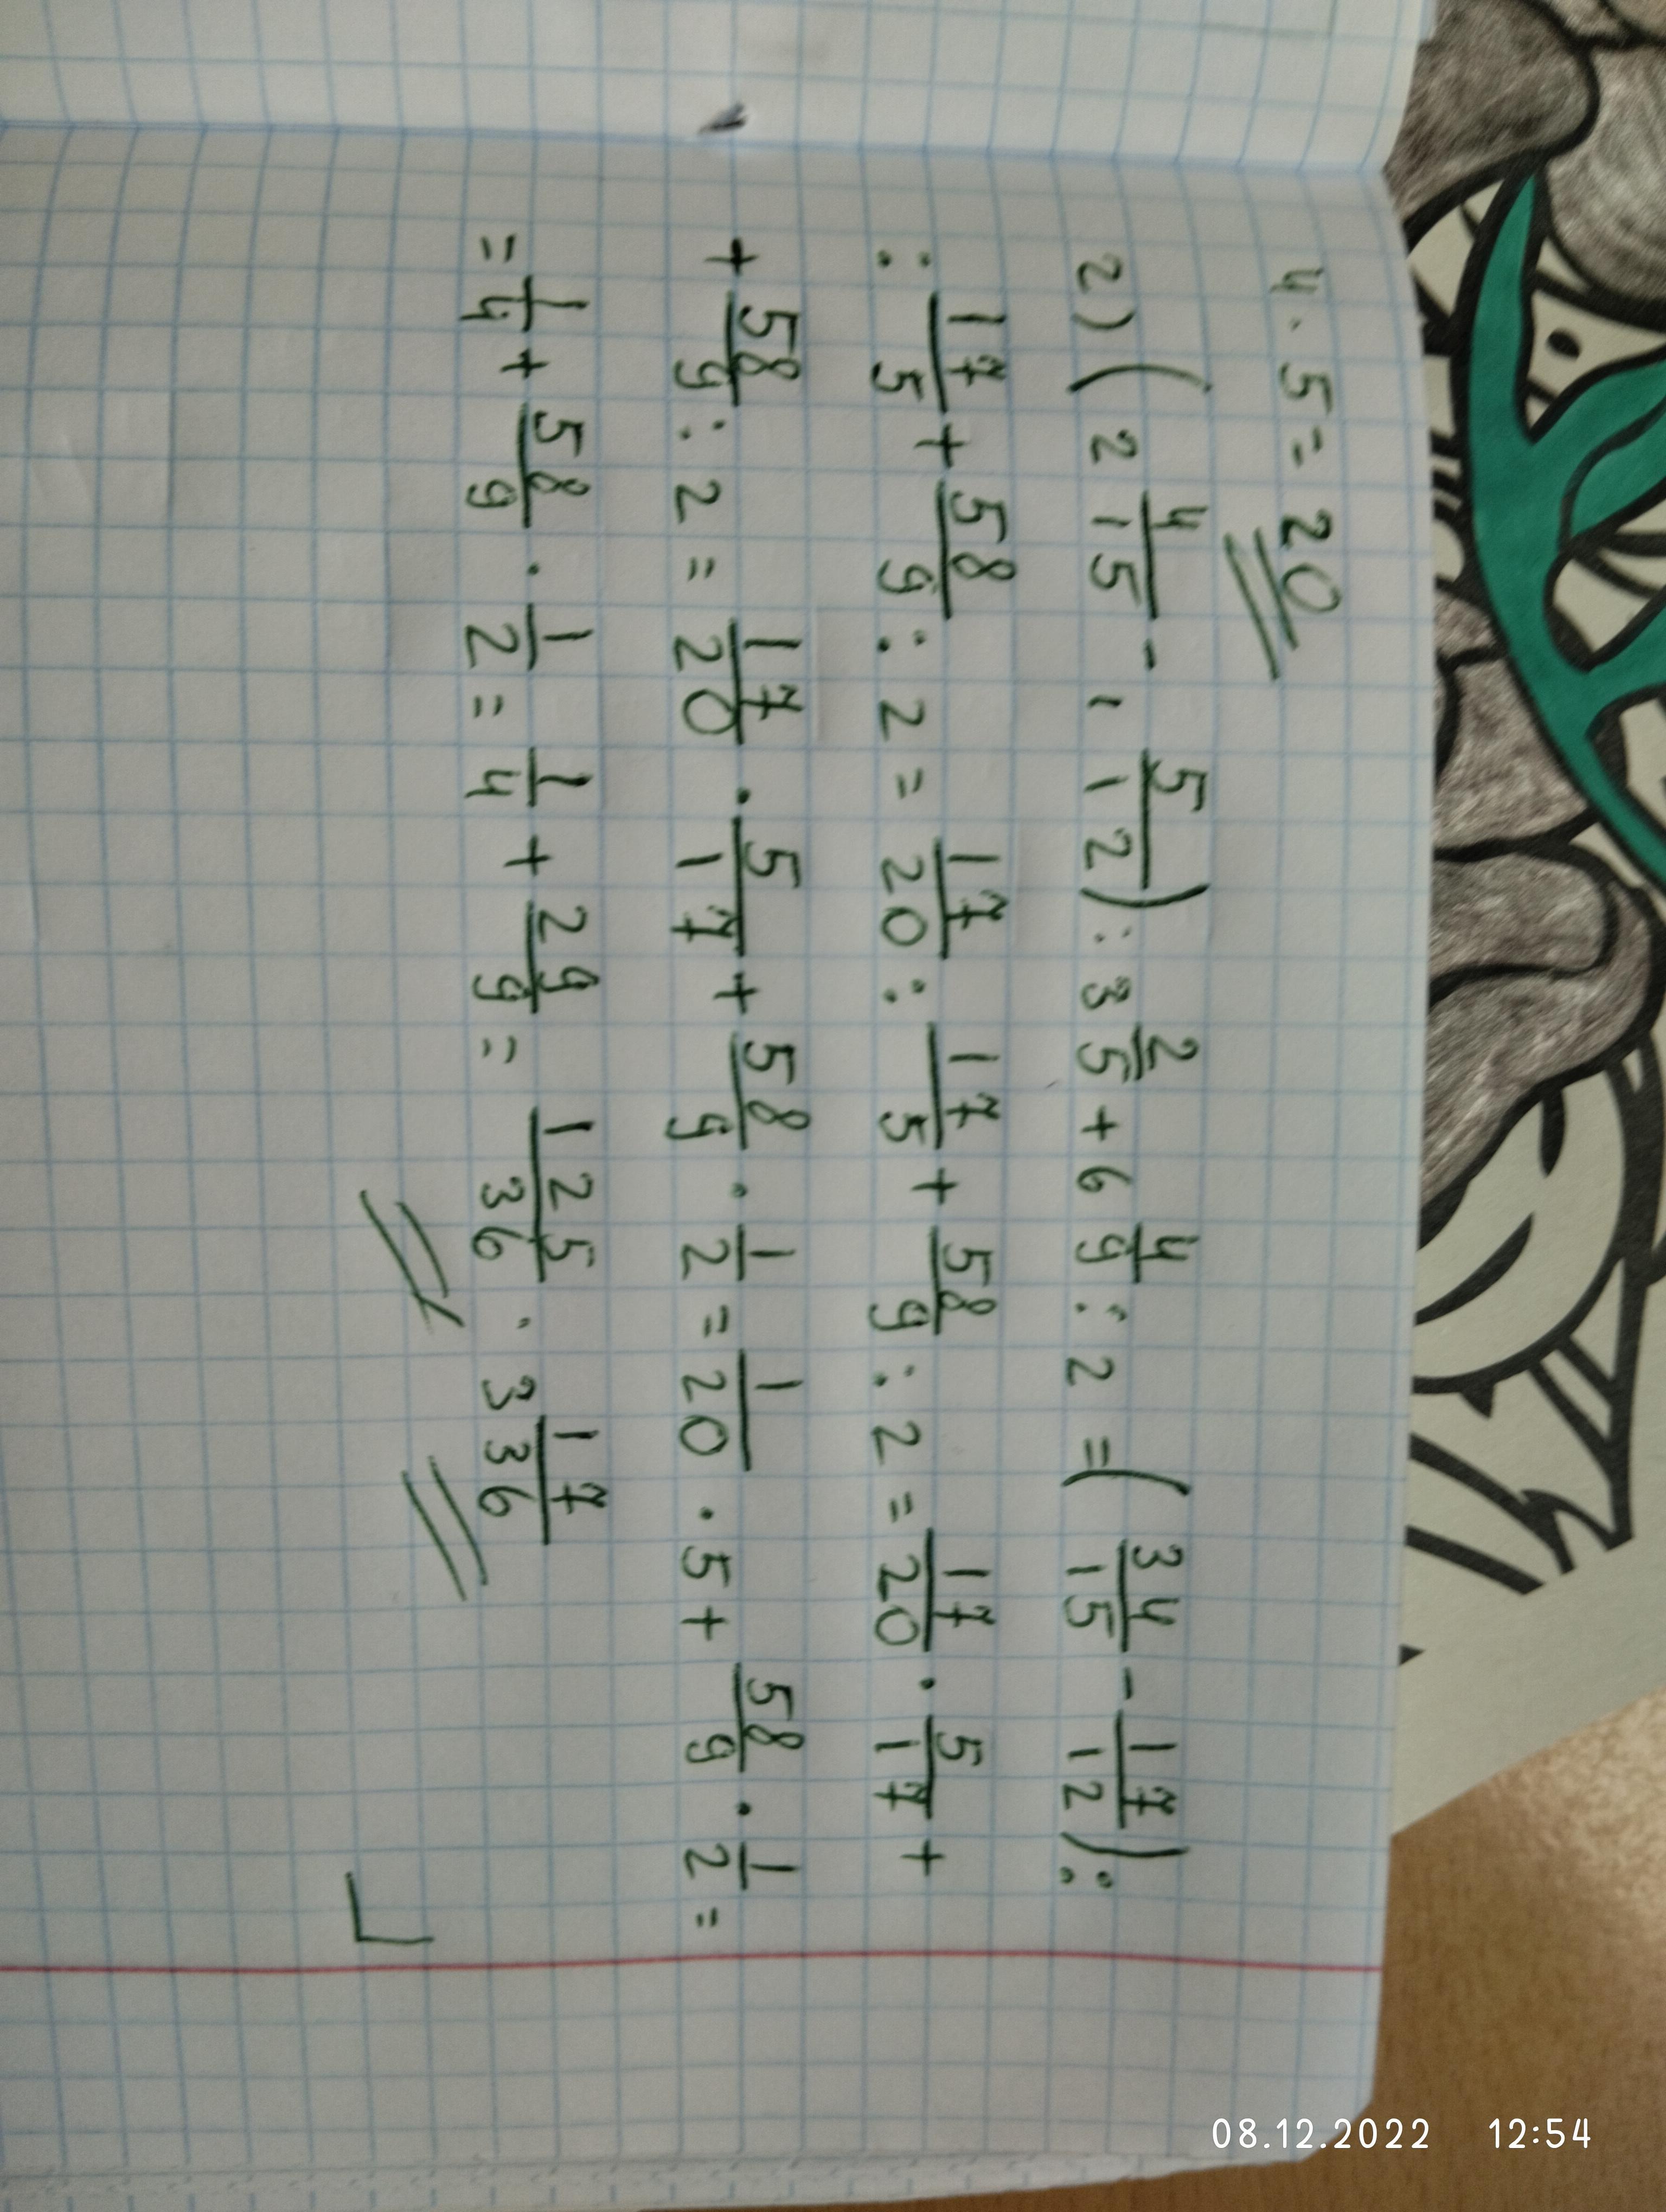 4 · 5 = 20
2) (2 4/15 - 1 5/12) : 3 2/5 + 6 4/9 : 2 = (34/15 - 17/12) :
: 17/5 + 58/9 : 2 = 17/20 : 17/5 + 58/9 : 2 = 17/20 · 5/17 +
+ 58/9 : 2 = 17/20 · 5/17 + 58/9 · 1/2 = 1/20 · 5 + 58/9 · 1/2 =
= 1/4 + 58/9 · 1/2 = 1/4 + 29/9 = 125/36 ; 3 17/36
08.12.2022 12:54